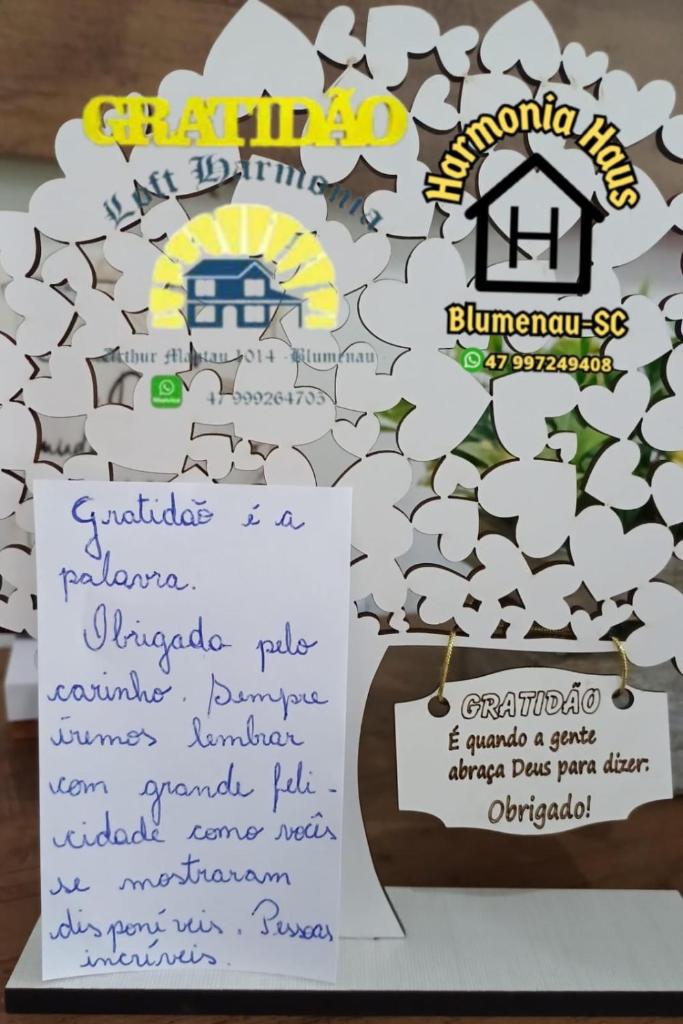 GRATIDÃO
Loft Harmonia
Arthur 1014 - Blumenau
WhatsApp
47 999264703
Harmonia Haus
H
Blumenau-SC
47 997249408
Gratidão é a
palavra.
Obrigada pelo
carinho. Sempre
iremos lembrar
com grande feli-
cidade como vocês
se mostraram
disponíveis. Pessoas
incríveis.
GRATIDÃO
É quando a gente
abraça Deus para dizer:
Obrigado!